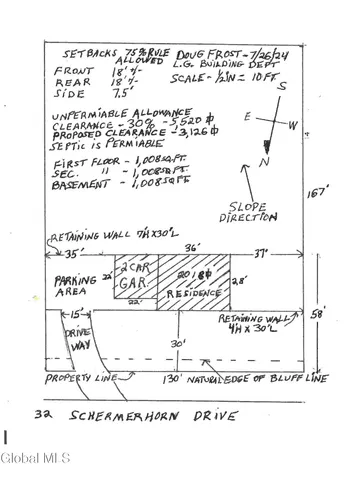 SETBACKS 75% RULE ALLOWED
FRONT 18' +/-
REAR 18' +/-
SIDE 7.5'
DOUG FROST - 7/26/24
L.G. BUILDING DEPT
SCALE - 1/2 IN = 10 FT
S
E
W
N
UNPERMIABLE ALLOWANCE
CLEARANCE - 30% - 5,520 ф
PROPOSED CLEARANCE - 3,126 ф
SEPTIC IS PERMIABLE
FIRST FLOOR - 1,008 SQ.FT.
SEC. " - 1,008 SQ.FT.
BASEMENT - 1,008 SQ FT
SLOPE
DIRECTION
167'
RETAINING WALL 7'H X 30'L
35'
36'
37'
PARKING
AREA
22'
2 CAR
GAR.
22'
2018 ф
RESIDENCE
28'
RETAINING WALL
4'H X 30'L
58'
15'
DRIVE
WAY
30'
PROPERTY LINE
130'
NATURAL EDGE OF BLUFF LINE
32 SCHERMERHORN DRIVE
Global MLS